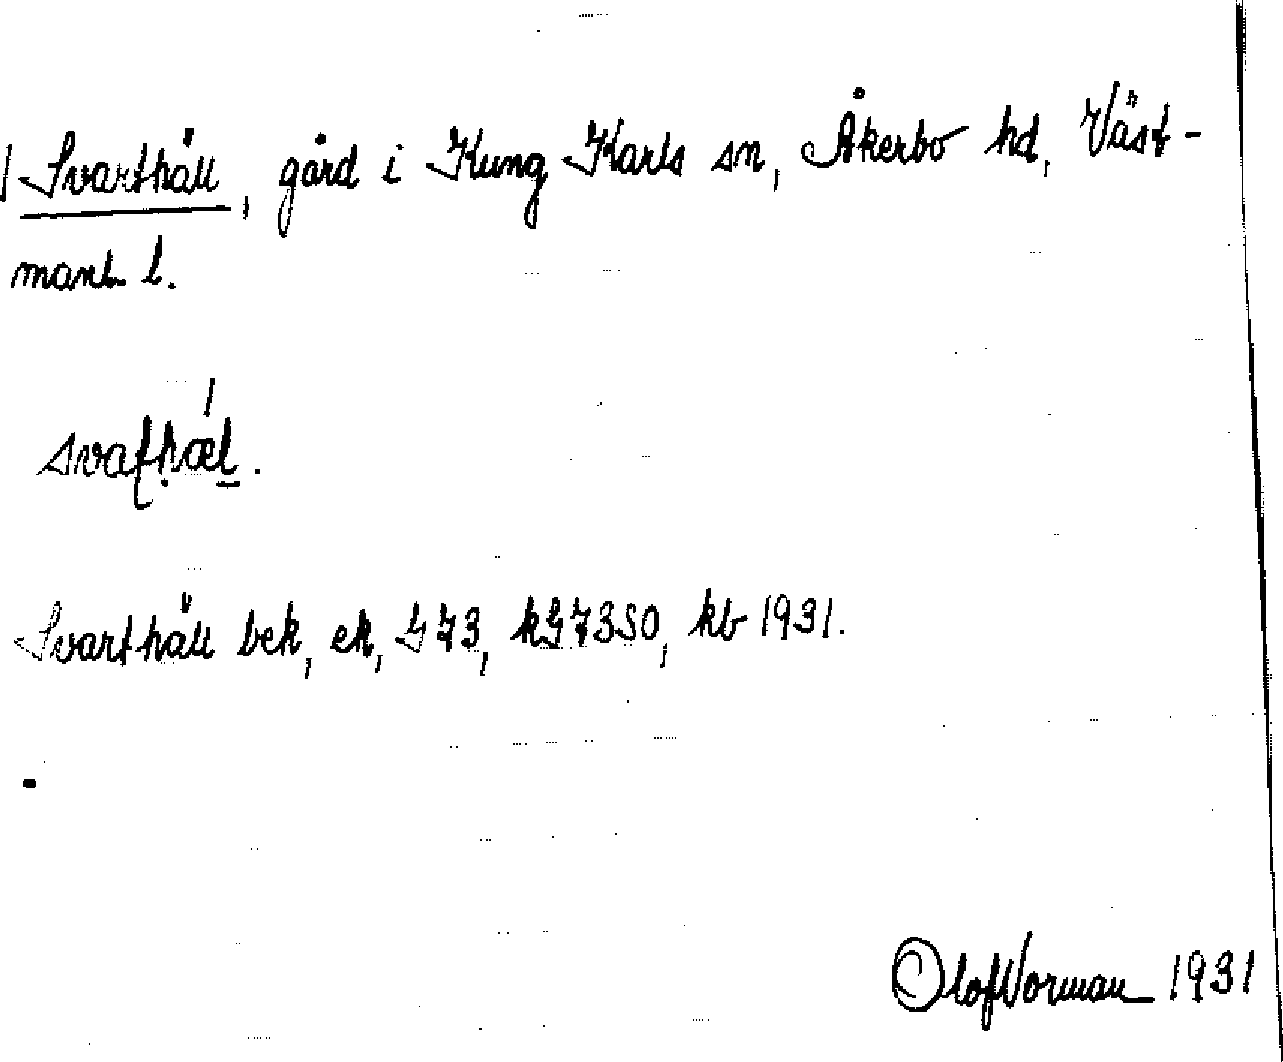 Svarthäll, gård i Kung Karls sn, Åkerbo hd, Väst-
manl. l.
Svarthäll bek, ek, G73, kG73SO, kb 1931.
Olof Norman 1931